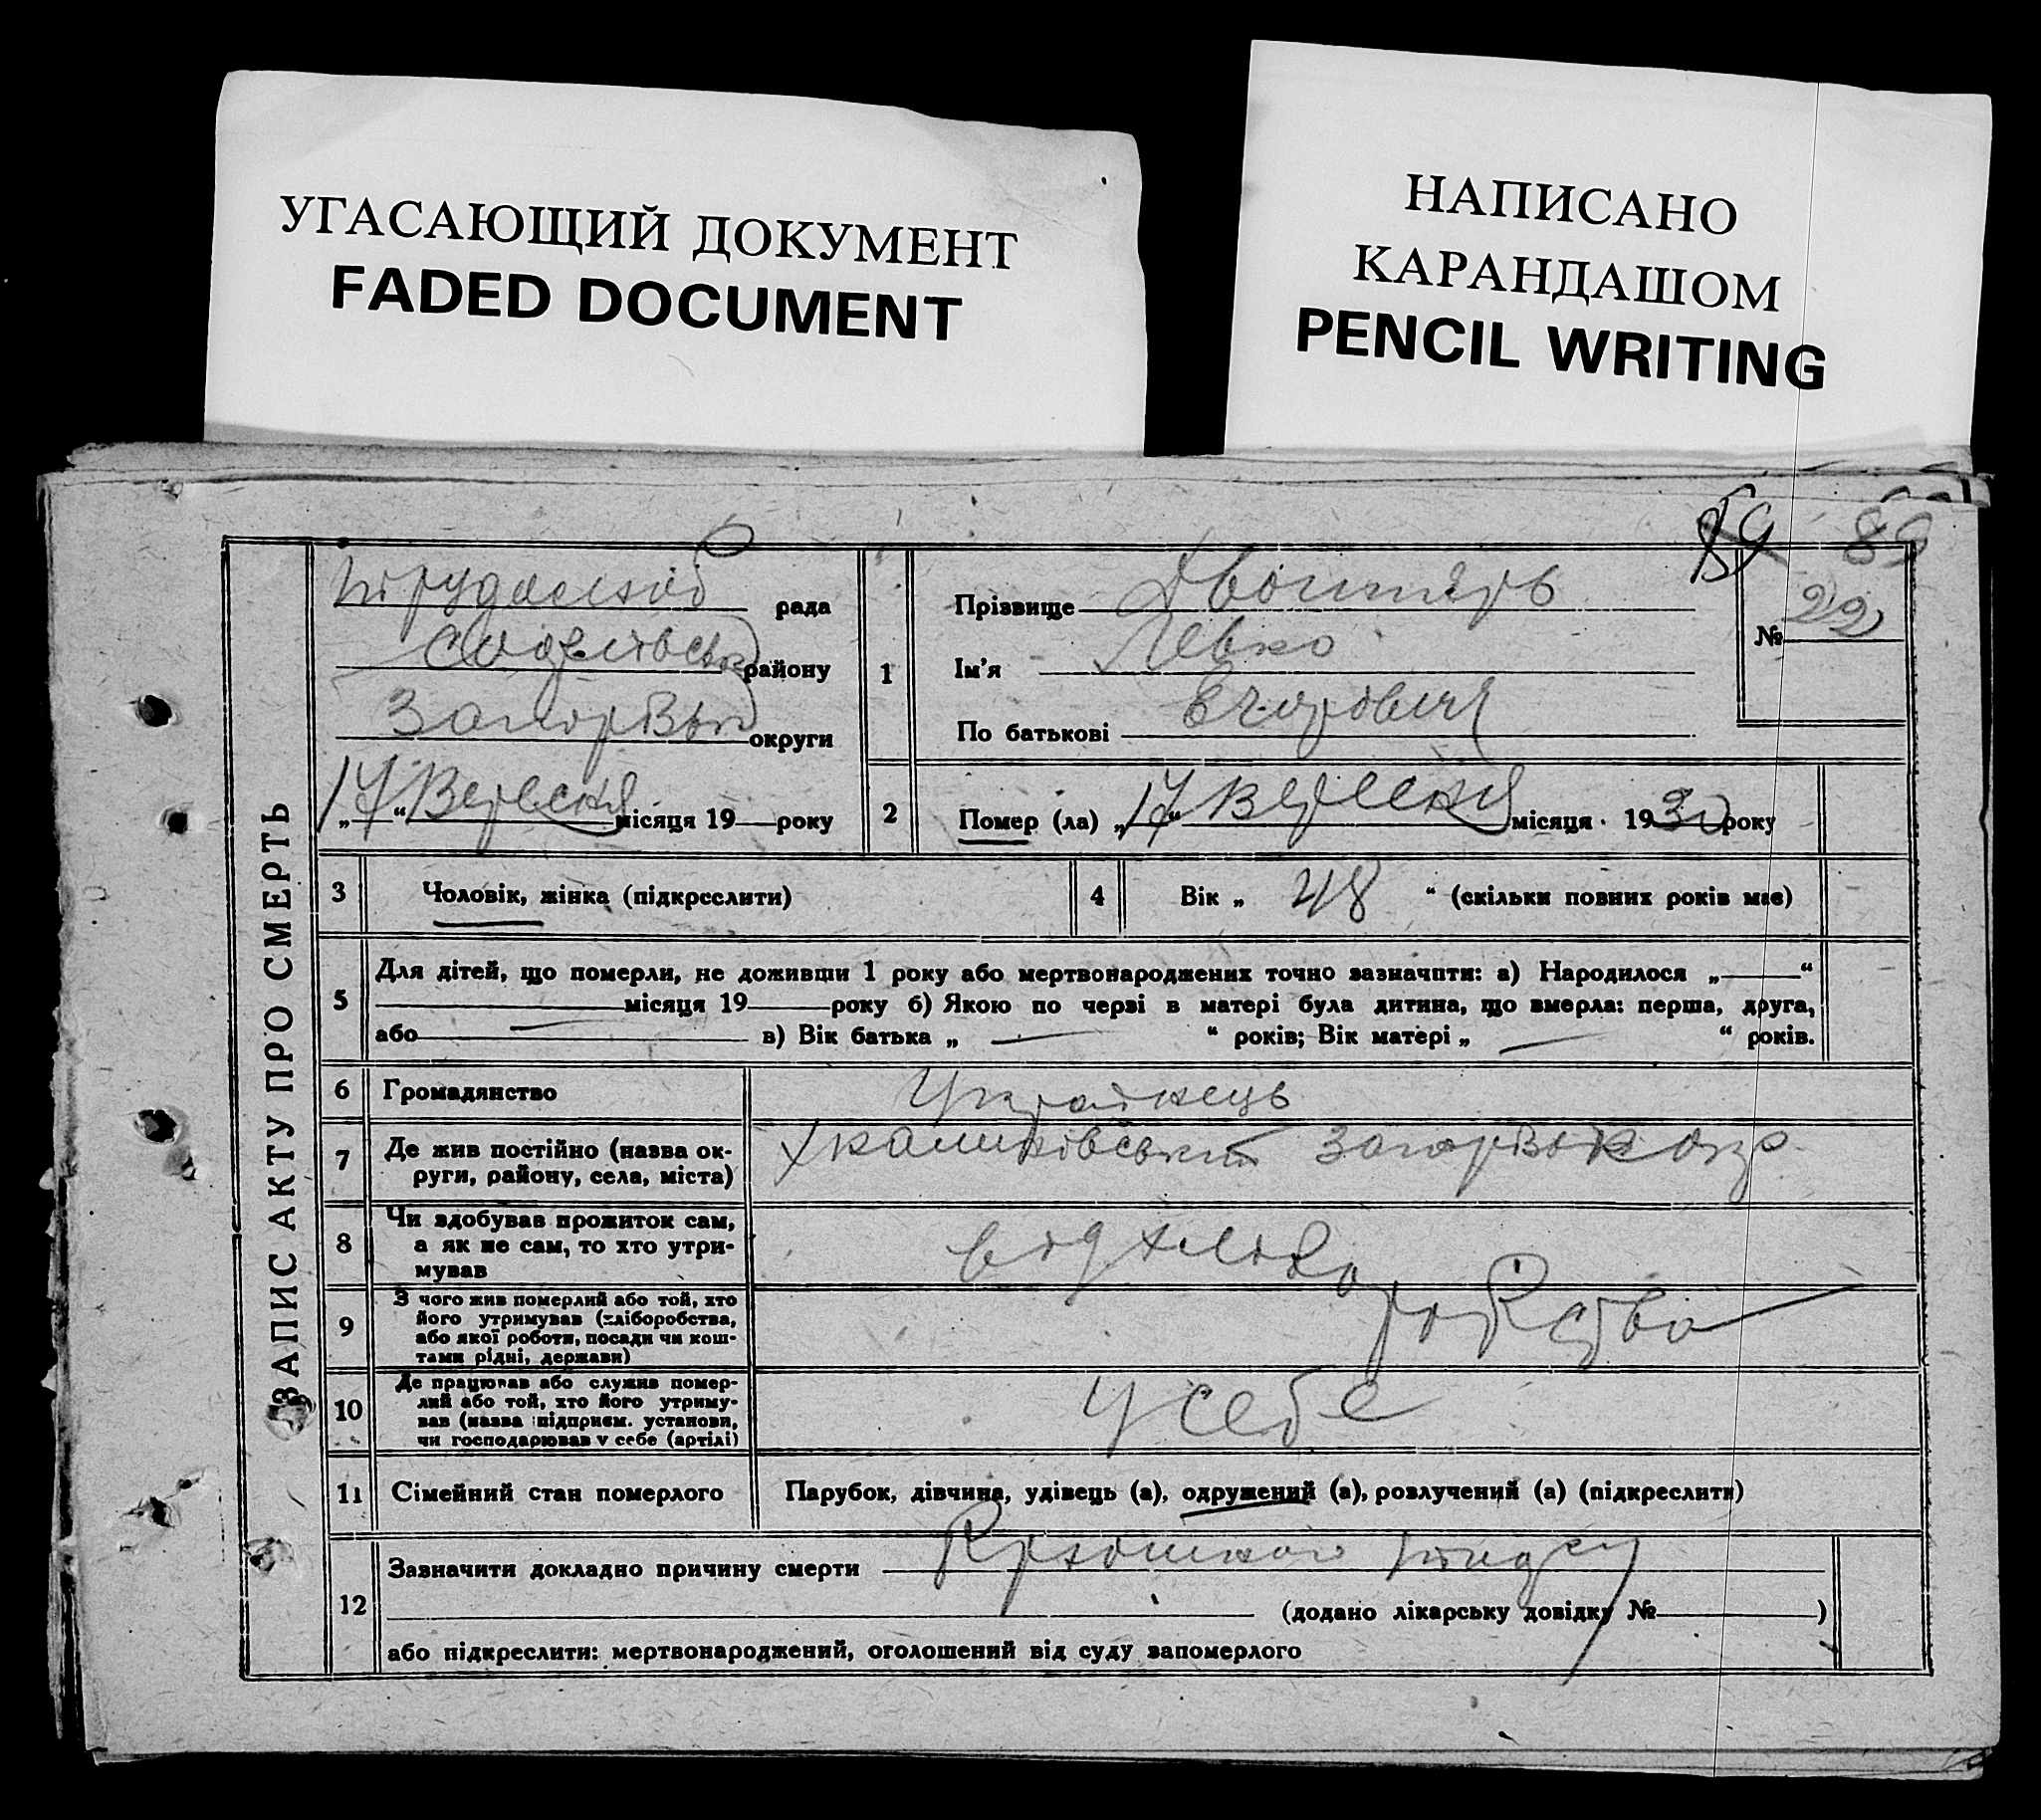 УГАСАЮЩИЙ ДОКУМЕНТ
FADED DOCUMENT
НАПИСАНО
КАРАНДАШОМ
PENCIL WRITING
89 89
ЗАПИС АКТУ ПРО СМЕРТЬ
рада
району
округи
„17“ Вересня місяця 19 року
1
Прізвище
Ім'я Левко
По батькові Єгорович
№ 22
2 Помер (ла) „17“ Вересня місяця 1930 року
3 Чоловік, жінка (підкреслити)
4 Вік „ 48 “ (скільки повних років має)
5 Для дітей, що померли, не доживши 1 року або мертвонароджених точно зазначити: а) Народилося „ “
місяця 19 року б) Якою по черзі в матері була дитина, що вмерла: перша, друга,
або в) Вік батька „ “ років; Вік матері „ “ років.
6 Громадянство Українець
7 Де жив постійно (назва ок-
руги, району, села, міста)
8 Чи здобував прожиток сам,
а як не сам, то хто утри-
мував
від хлібо
9 З чого жив померлий або той, хто
його утримував (хліборобства,
або якої роботи, посади чи кош-
тами рідні, держави)
робства
10 Де працював або служив помер-
лий або той, хто його утриму-
вав (назва підприєм. установи,
чи господарював у себе (артілі)
У себе
11 Сімейний стан померлого Парубок, дівчина, удівець (а), одружений (а), розлучений (а) (підкреслити)
12 Зазначити докладно причину смерти
(додано лікарську довідку № )
або підкреслити: мертвонароджений, оголошений від суду запомерлого